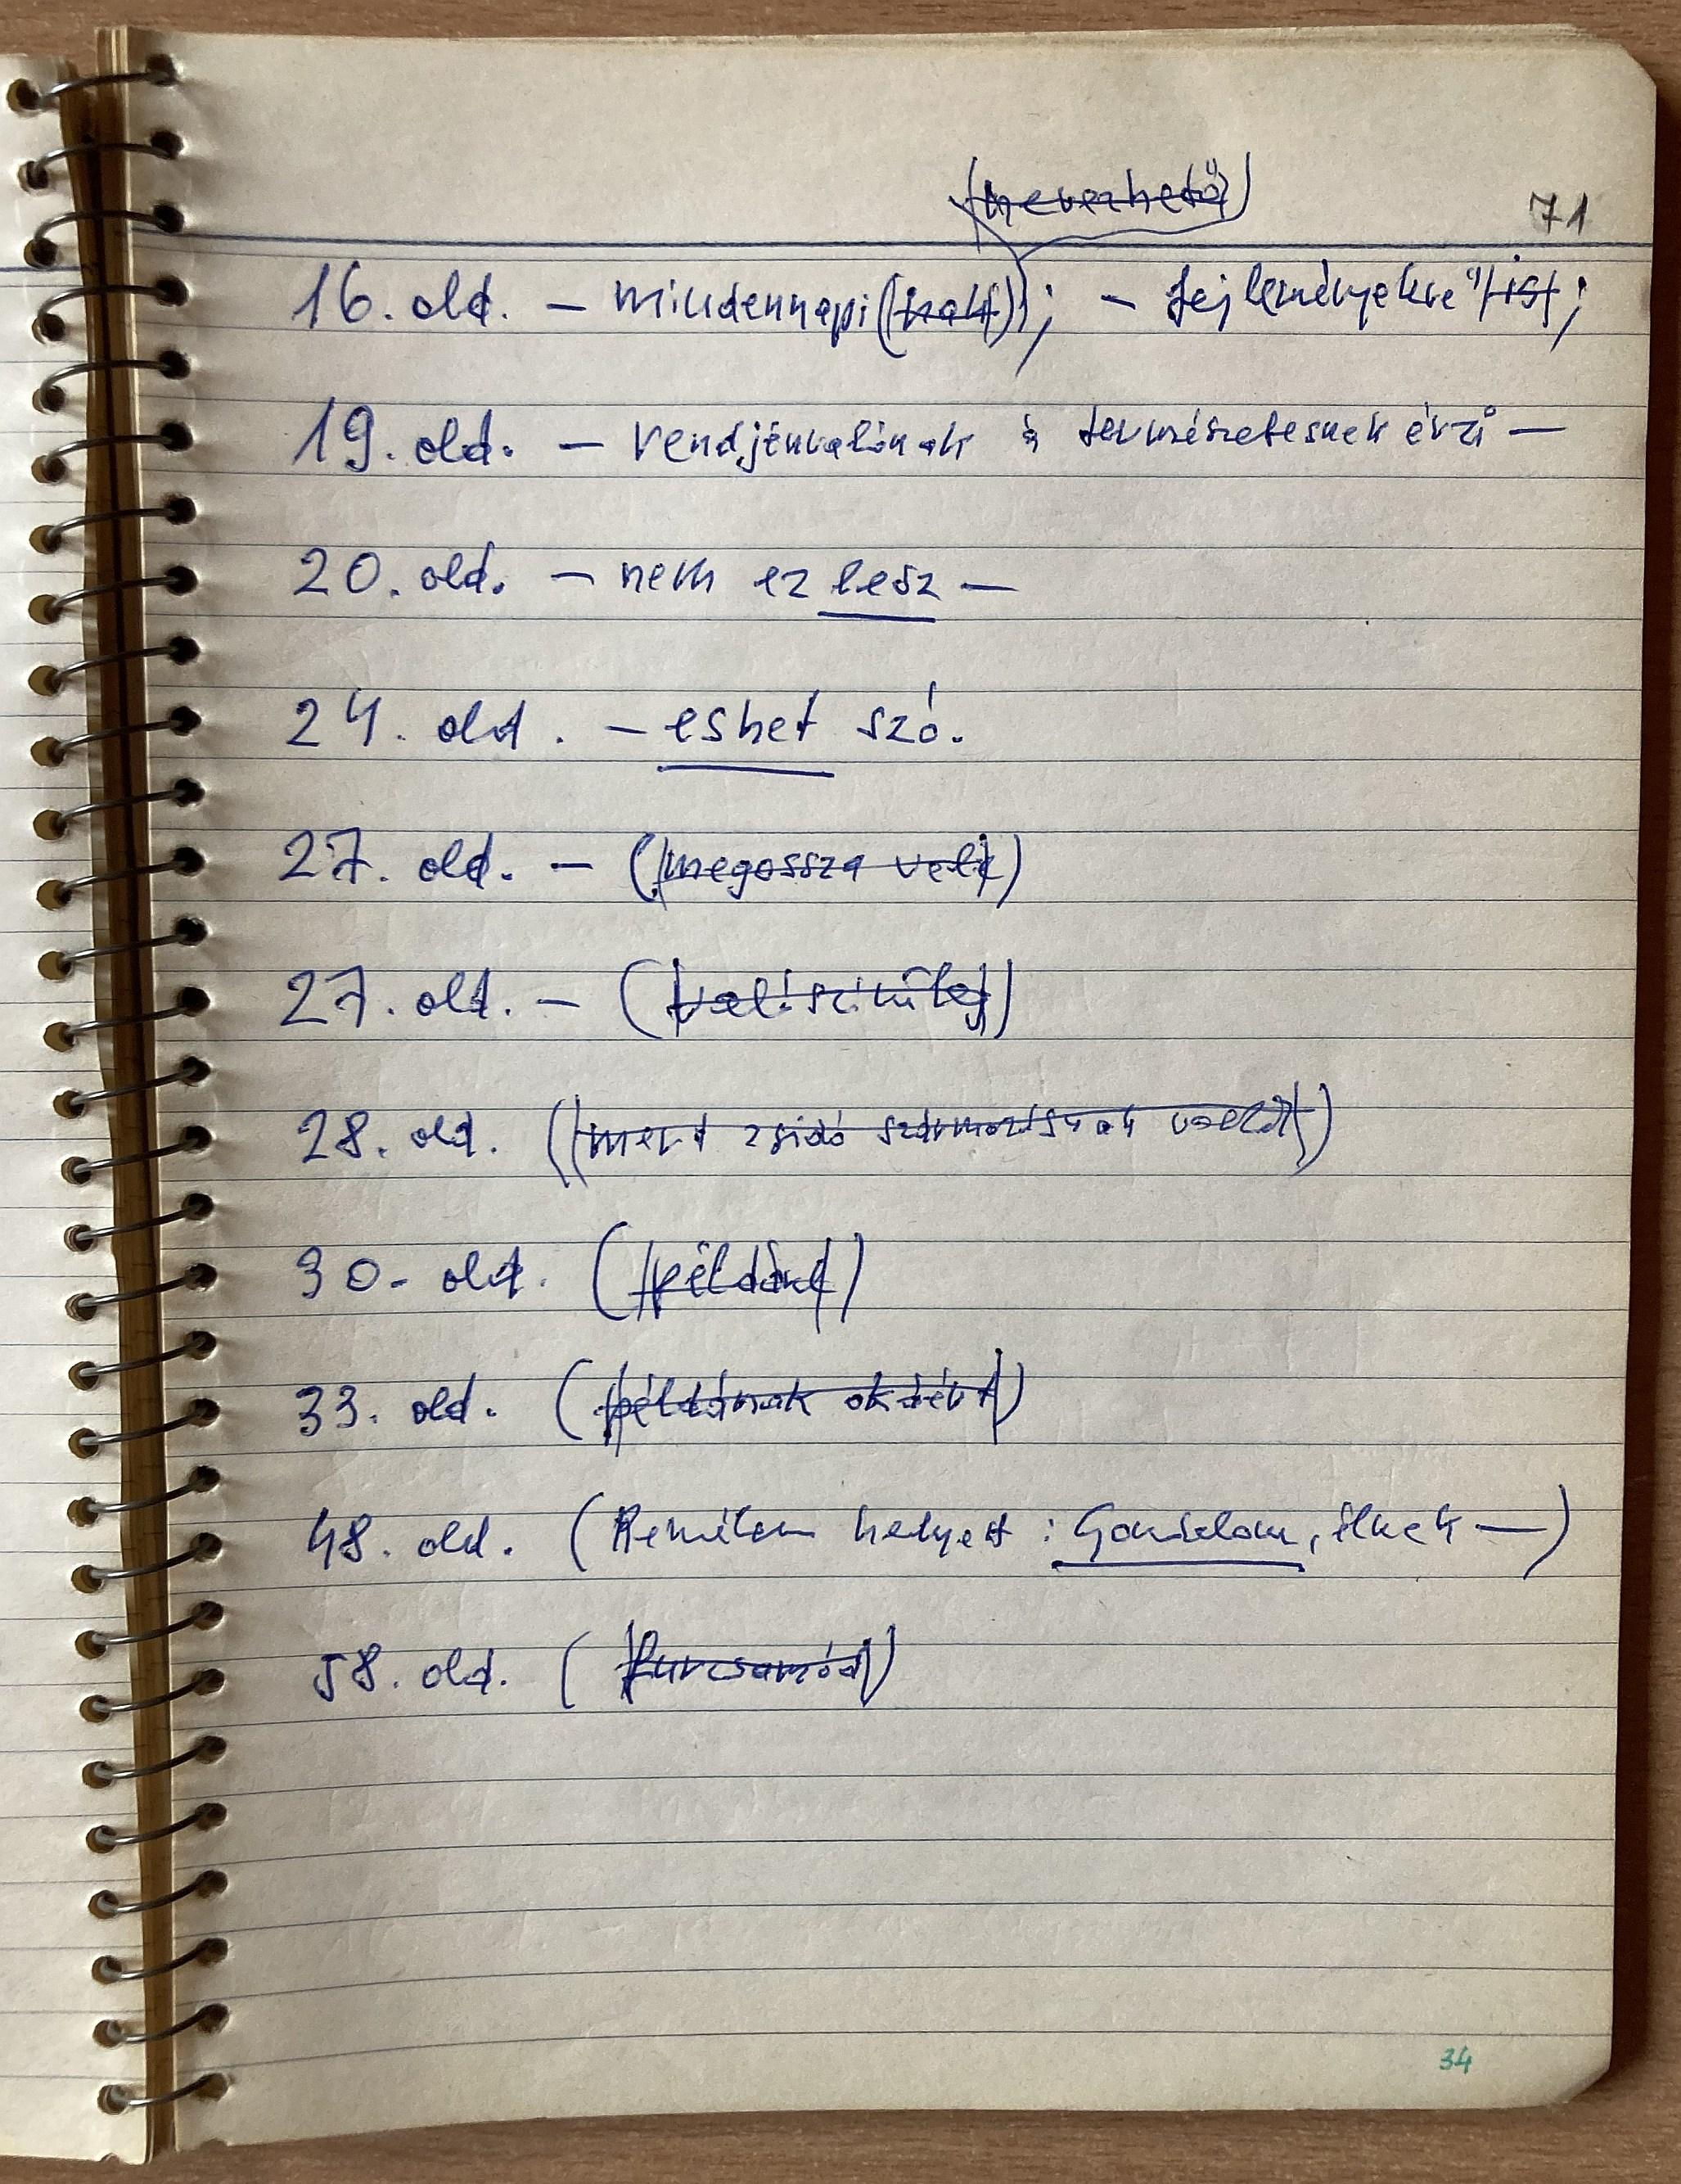 (nevezhető)
71
16. old. – mindennapi (nak); – fejleményekre is;
19. old. – rendjénvalónak s természetesnek érzi –
20. old. – nem ez lesz –
24. old. – eshet szó.
27. old. – (megossza vele)
27. old. – (valószínűleg)
28. old. (mert zsidó származásnak)
30. old. (például)
33. old. (példának okáért)
48. old. (Remélem helyett: Gondolom, –)
58. old. (furcsamód)
34